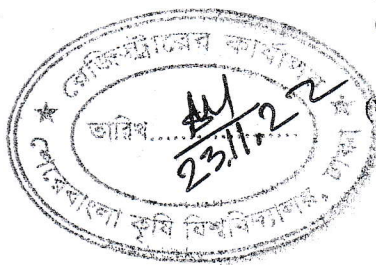 রেজিস্ট্রারের কার্যালয়
তারিখ..................
23.11.22
শেরেবাংলা কৃষি বিশ্ববিদ্যালয়, ঢাকা